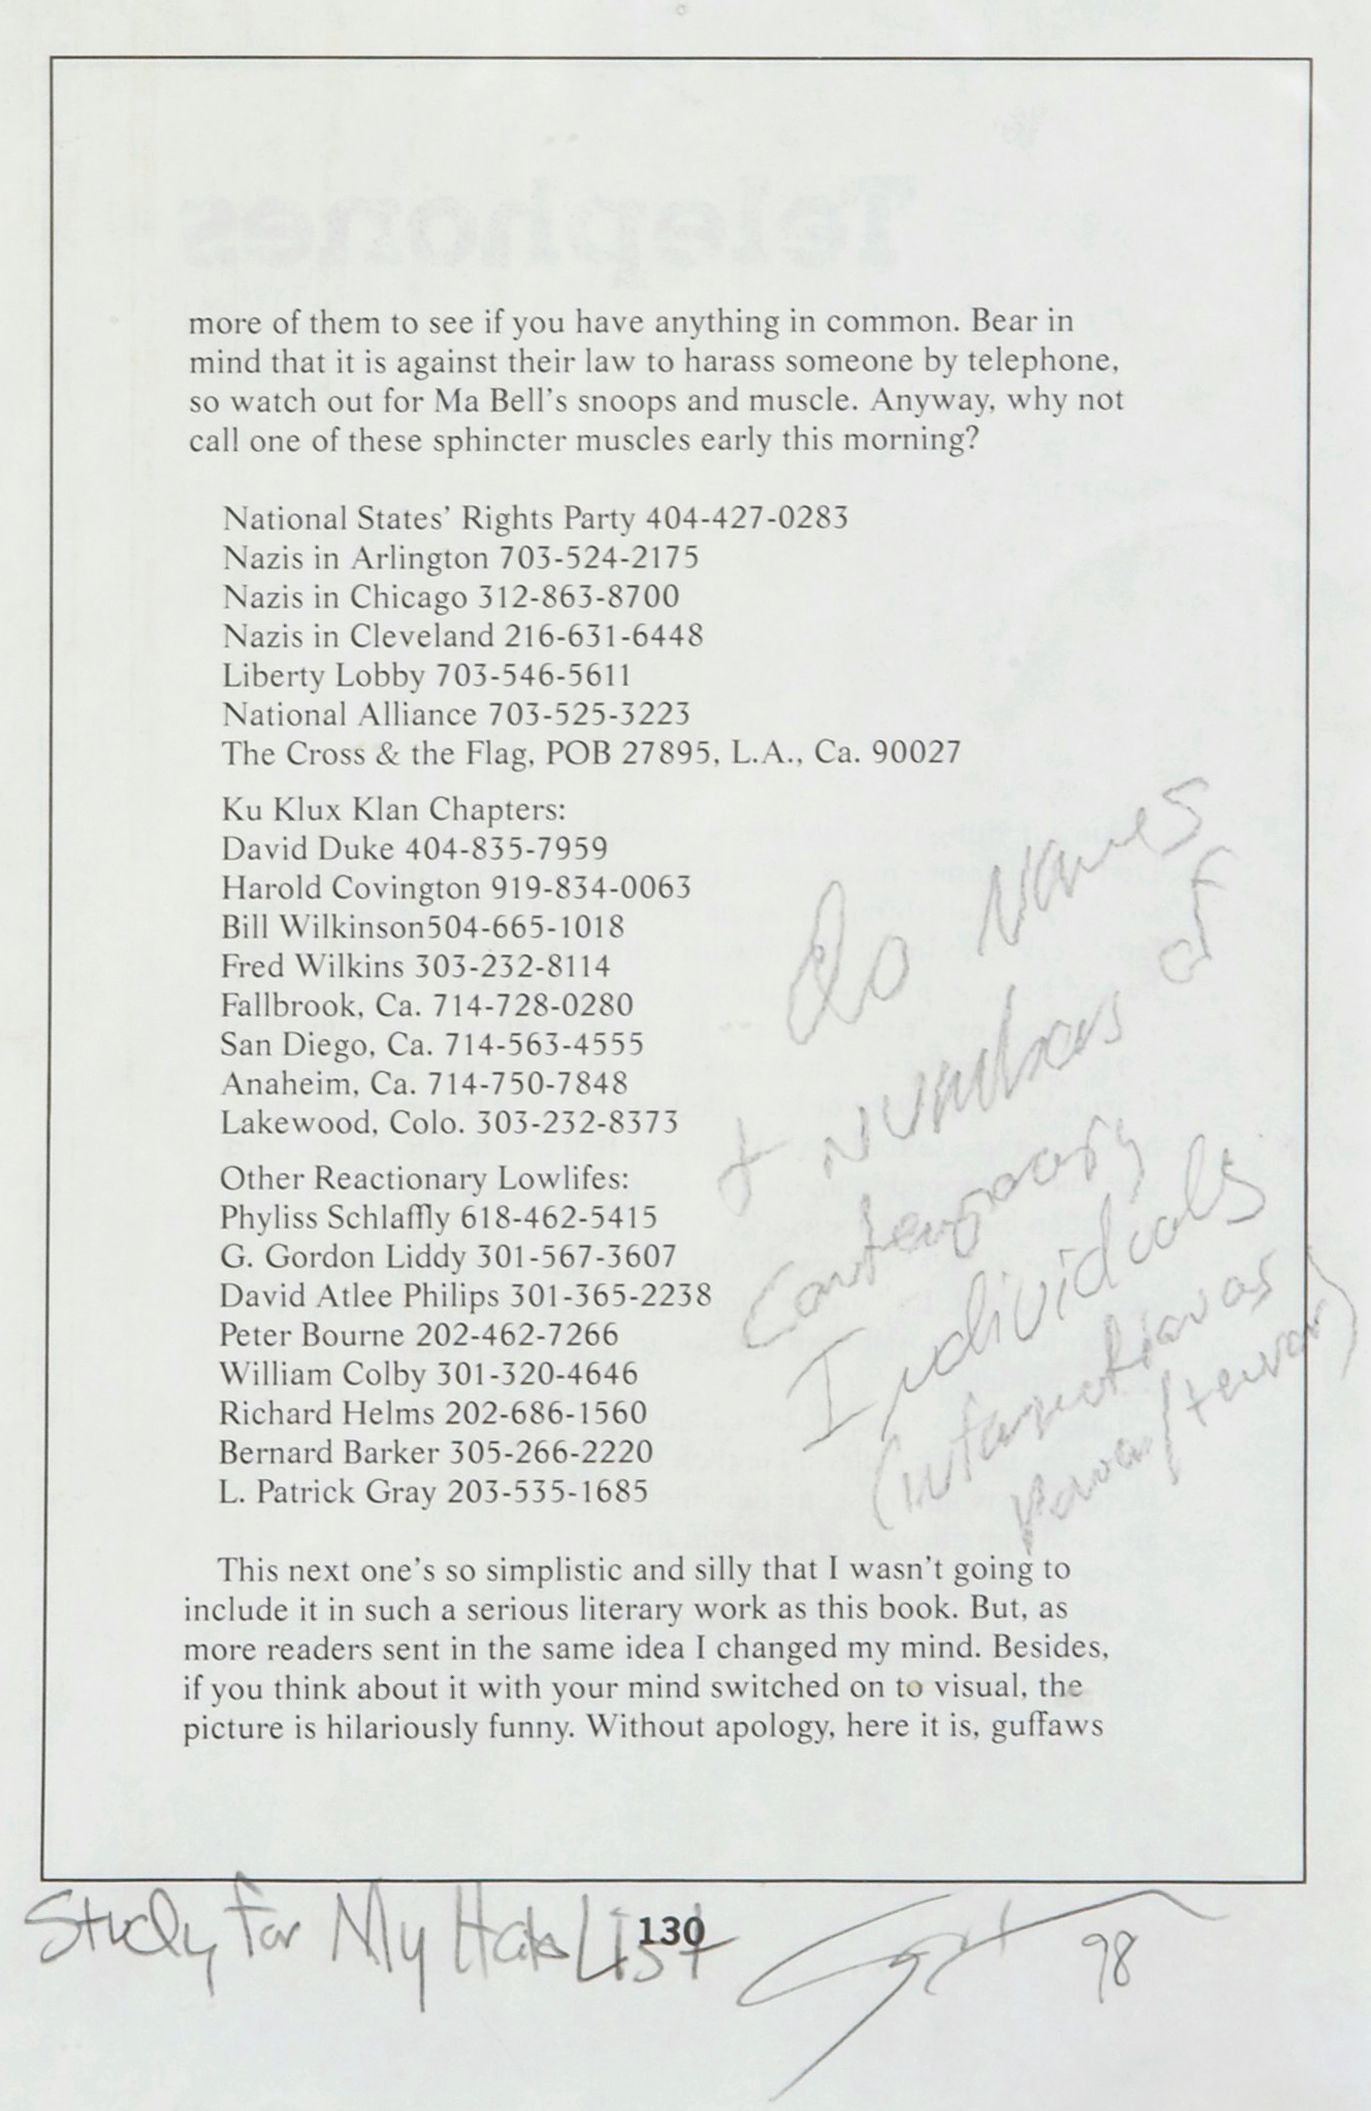 more of them to see if you have anything in common. Bear in
mind that it is against their law to harass someone by telephone,
so watch out for Ma Bell's snoops and muscle. Anyway, why not
call one of these sphincter muscles early this morning?
National States' Rights Party 404-427-0283
Nazis in Arlington 703-524-2175
Nazis in Chicago 312-863-8700
Nazis in Cleveland 216-631-6448
Liberty Lobby 703-546-5611
National Alliance 703-525-3223
The Cross & the Flag, POB 27895, L.A., Ca. 90027
Ku Klux Klan Chapters:
David Duke 404-835-7959
Harold Covington 919-834-0063
Bill Wilkinson504-665-1018
Fred Wilkins 303-232-8114
Fallbrook, Ca. 714-728-0280
San Diego, Ca. 714-563-4555
Anaheim, Ca. 714-750-7848
Lakewood, Colo. 303-232-8373
Other Reactionary Lowlifes:
Phyliss Schlaffly 618-462-5415
G. Gordon Liddy 301-567-3607
David Atlee Philips 301-365-2238
Peter Bourne 202-462-7266
William Colby 301-320-4646
Richard Helms 202-686-1560
Bernard Barker 305-266-2220
L. Patrick Gray 203-535-1685
do names
+ numbers of
Contemporary
Individuals
This next one's so simplistic and silly that I wasn't going to
include it in such a serious literary work as this book. But, as
more readers sent in the same idea I changed my mind. Besides,
if you think about it with your mind switched on to visual, the
picture is hilariously funny. Without apology, here it is, guffaws
130
Study for My Hate List 98